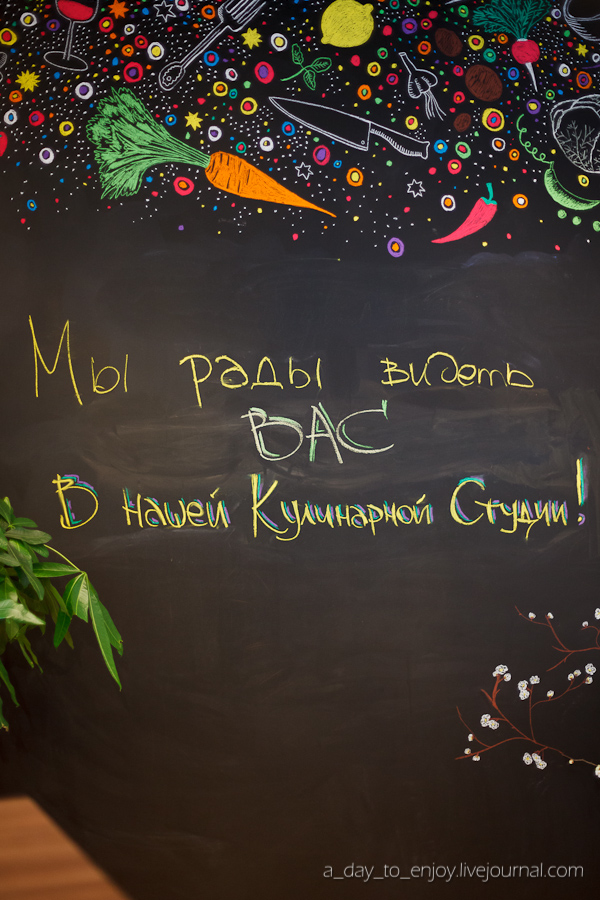 Мы рады видеть
ВАС
В нашей Кулинарной Студии!
a_day_to_enjoy.livejournal.com